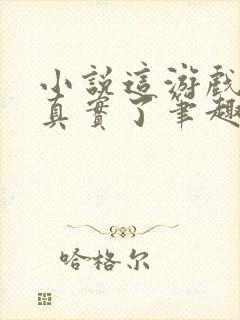 小說這游戲
真實了筆趣
哈格尔